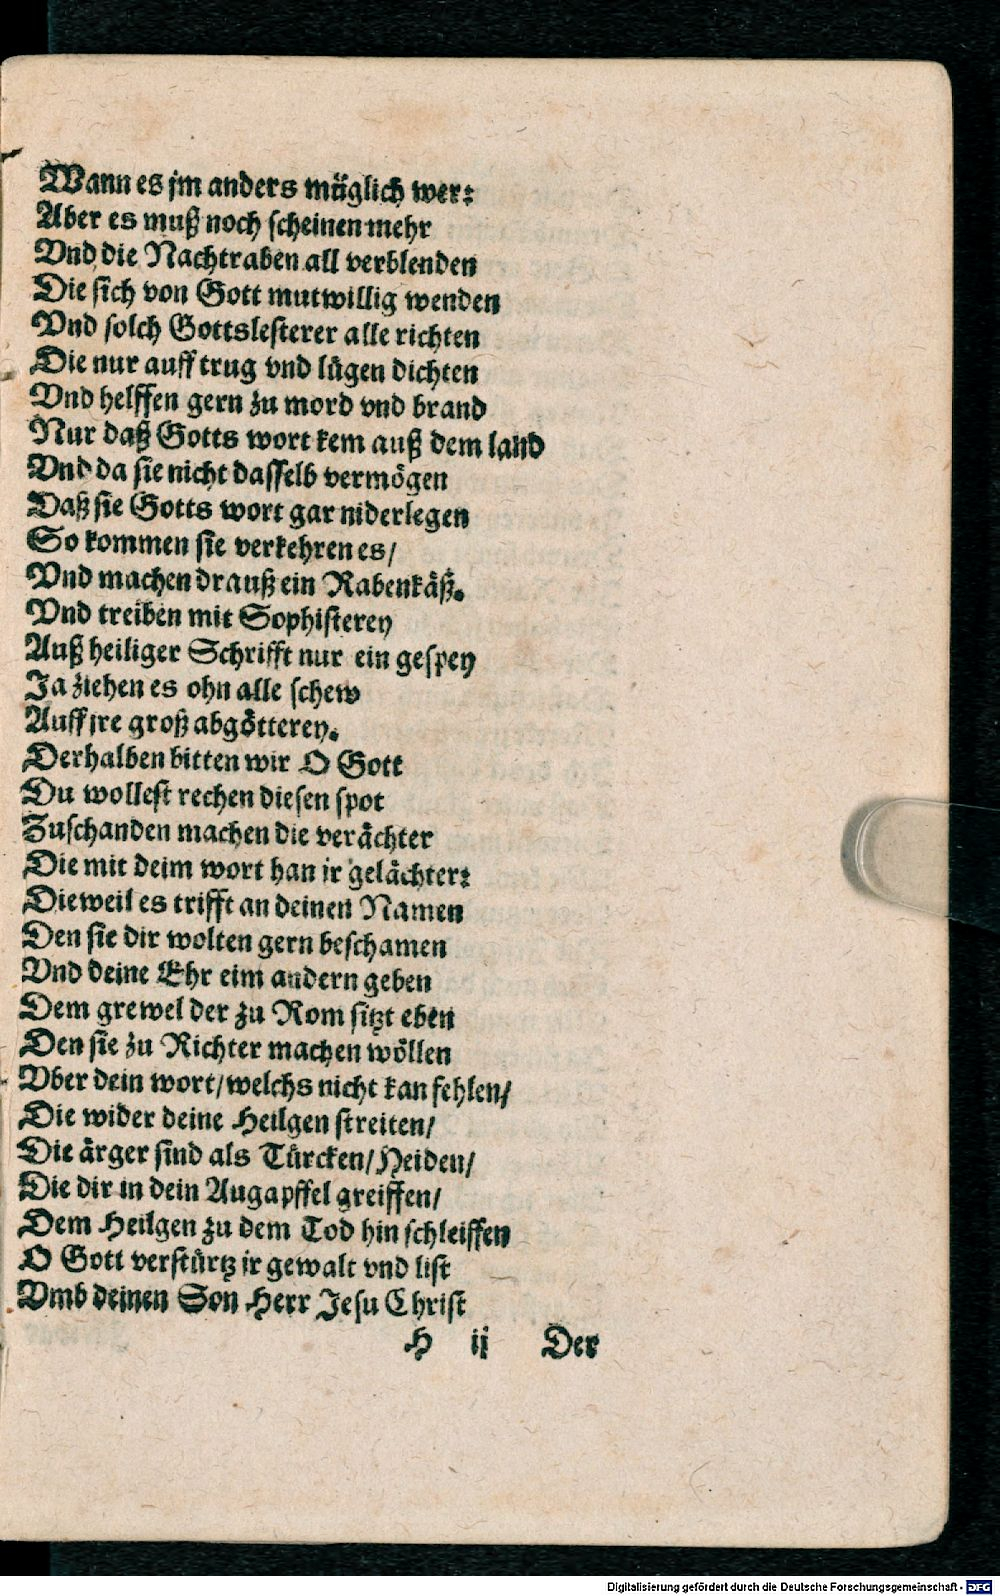 Wann es jm anders müglich wer:
Aber es muß noch scheinen mehr
Vnd die Nachtraben all verblenden
Die sich von Gott mutwillig wenden
Vnd solch Gottslesterer alle richten
Die nur auff trug vnd lügen dichten
Vnd helffen gern zu mord vnd brand
Nur daß Gotts wort kem auß dem land
Vnd da sie nicht dasselb vermögen
Daß sie Gotts wort gar niderlegen
So kommen sie verkehren es/
Vnd machen drauß ein Rabenkäß.
Vnd treiben mit Sophisterey
Auß heiliger Schrifft nur ein gespey
Ja ziehen es ohn alle schew
Auff jre groß abgötterey.
Derhalben bitten wir O Gott
Du wollest rechen diesen spot
Zuschanden machen die verächter
Die mit deim wort han ir gelächter:
Dieweil es trifft an deinen Namen
Den sie dir wolten gern beschamen
Vnd deine Ehr eim andern geben
Dem grewel der zu Rom sitzt eben
Den sie zu Richter machen wöllen
Vber dein wort/welchs nicht kan fehlen/
Die wider deine Heilgen streiten/
Die ärger sind als Türcken/Heiden/
Die dir in dein Augapffel greiffen/
Dem Heilgen zu dem Tod hin schleiffen
O Gott verstürtz ir gewalt vnd list
Vmb deinen Son Herr Jesu Christ
H ij Der
Digitalisierung gefördert durch die Deutsche Forschungsgemeinschaft - DFG